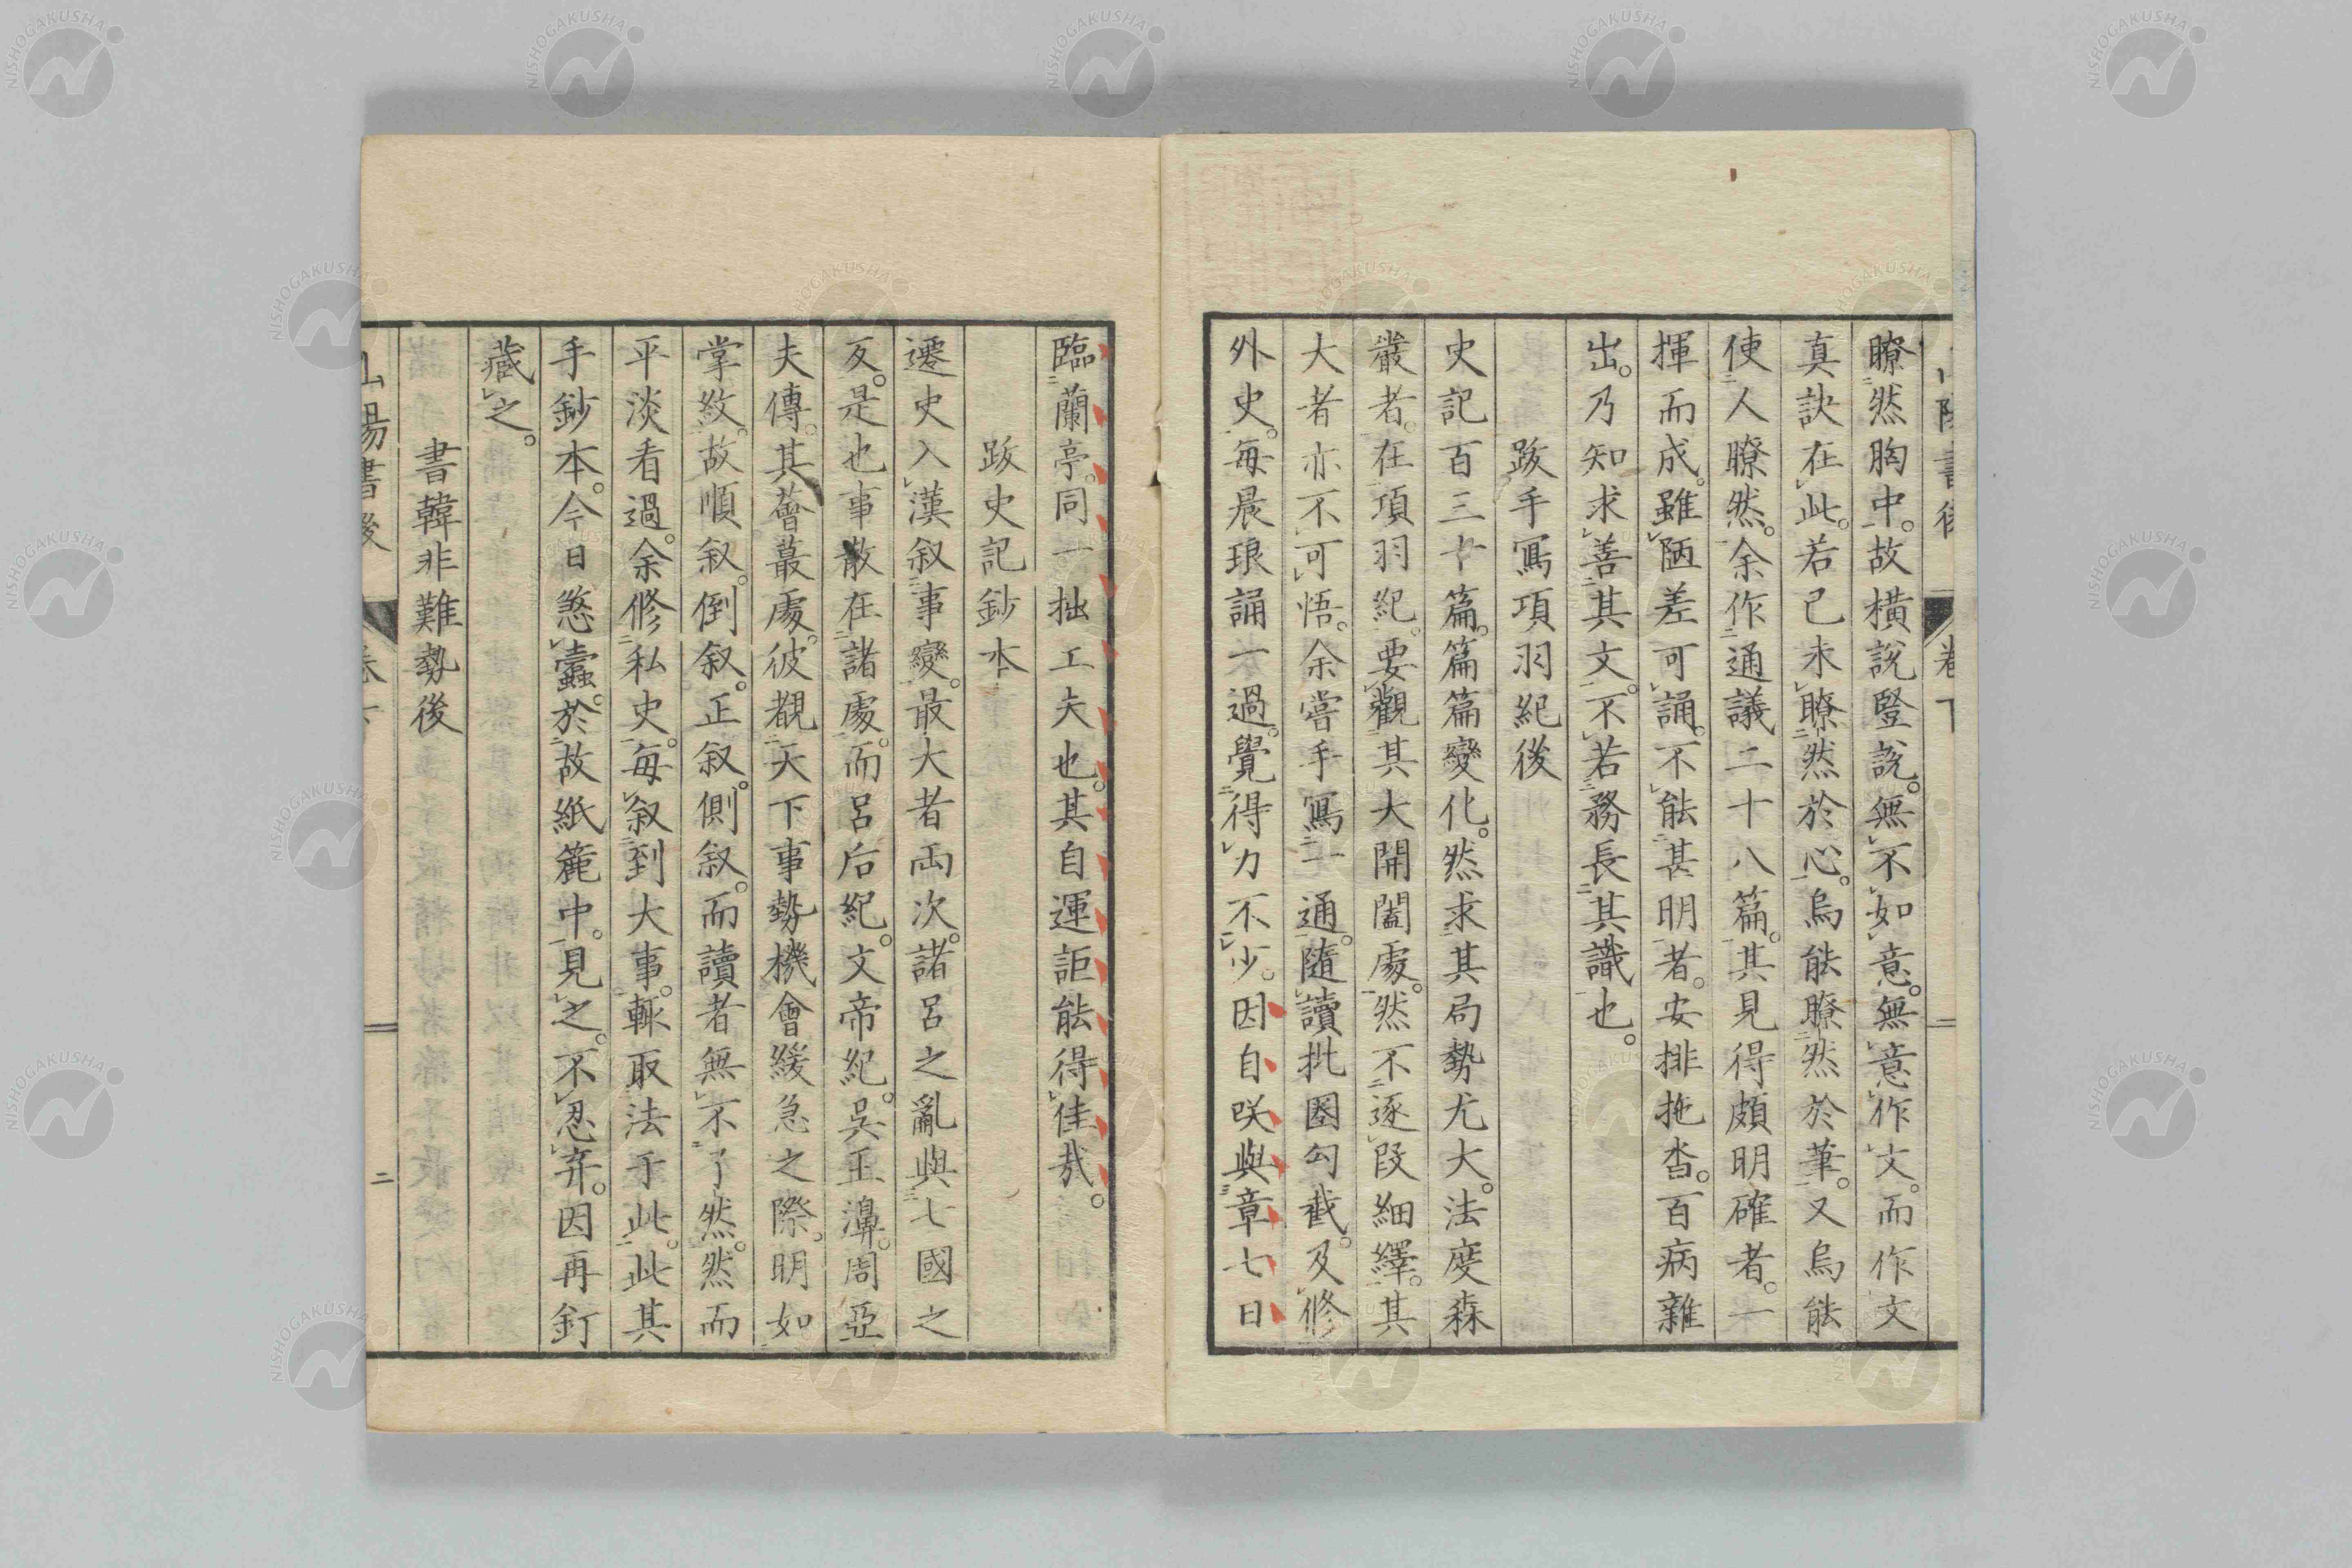 瞭然胸中。故橫說豎說。無不如意。無意作文。而作文
真訣在此。若己未瞭然於心。烏能瞭然於筆。又烏能
使人瞭然。余作通議二十八篇。其見得頗明確者。一
揮而成。雖陋差可誦。不能甚明者。安排拖沓。百病雜
出。乃知求善其文。不若務長其識也。
跋手寫項羽紀後
史記百三十篇。篇篇變化。然求其局勢尤大。法度森
嚴者。在項羽紀。要觀其大開闔處。然不逐段細繹。其
大者亦不可悟。余嘗手寫一通。隨讀批圈勾截。及修
外史。每晨琅誦一過。覺得力不少。因自咲與章七日
臨蘭亭。同一拙工夫也。其自運詎能得佳哉。
跋史記鈔本
遷史入漢叙事變。最大者兩次。諸呂之亂與七國之
反。是也事散在諸處。而呂后紀。文帝紀。吳王濞。周亞
夫傳。其薈蕞處。彼覩天下事勢機會緩急之際。明如
掌紋。故順叙。倒叙。正叙。側叙。而讀者無不了然。然而
平淡看過。余修私史。每叙到大事。輒取法于此。此其
手鈔本。今日慾蠹。於故紙簏中。見之。不忍弃。因再釘
藏之。
書韓非難勢後
山陽書後
卷下
二
NISHOGAKUSHA